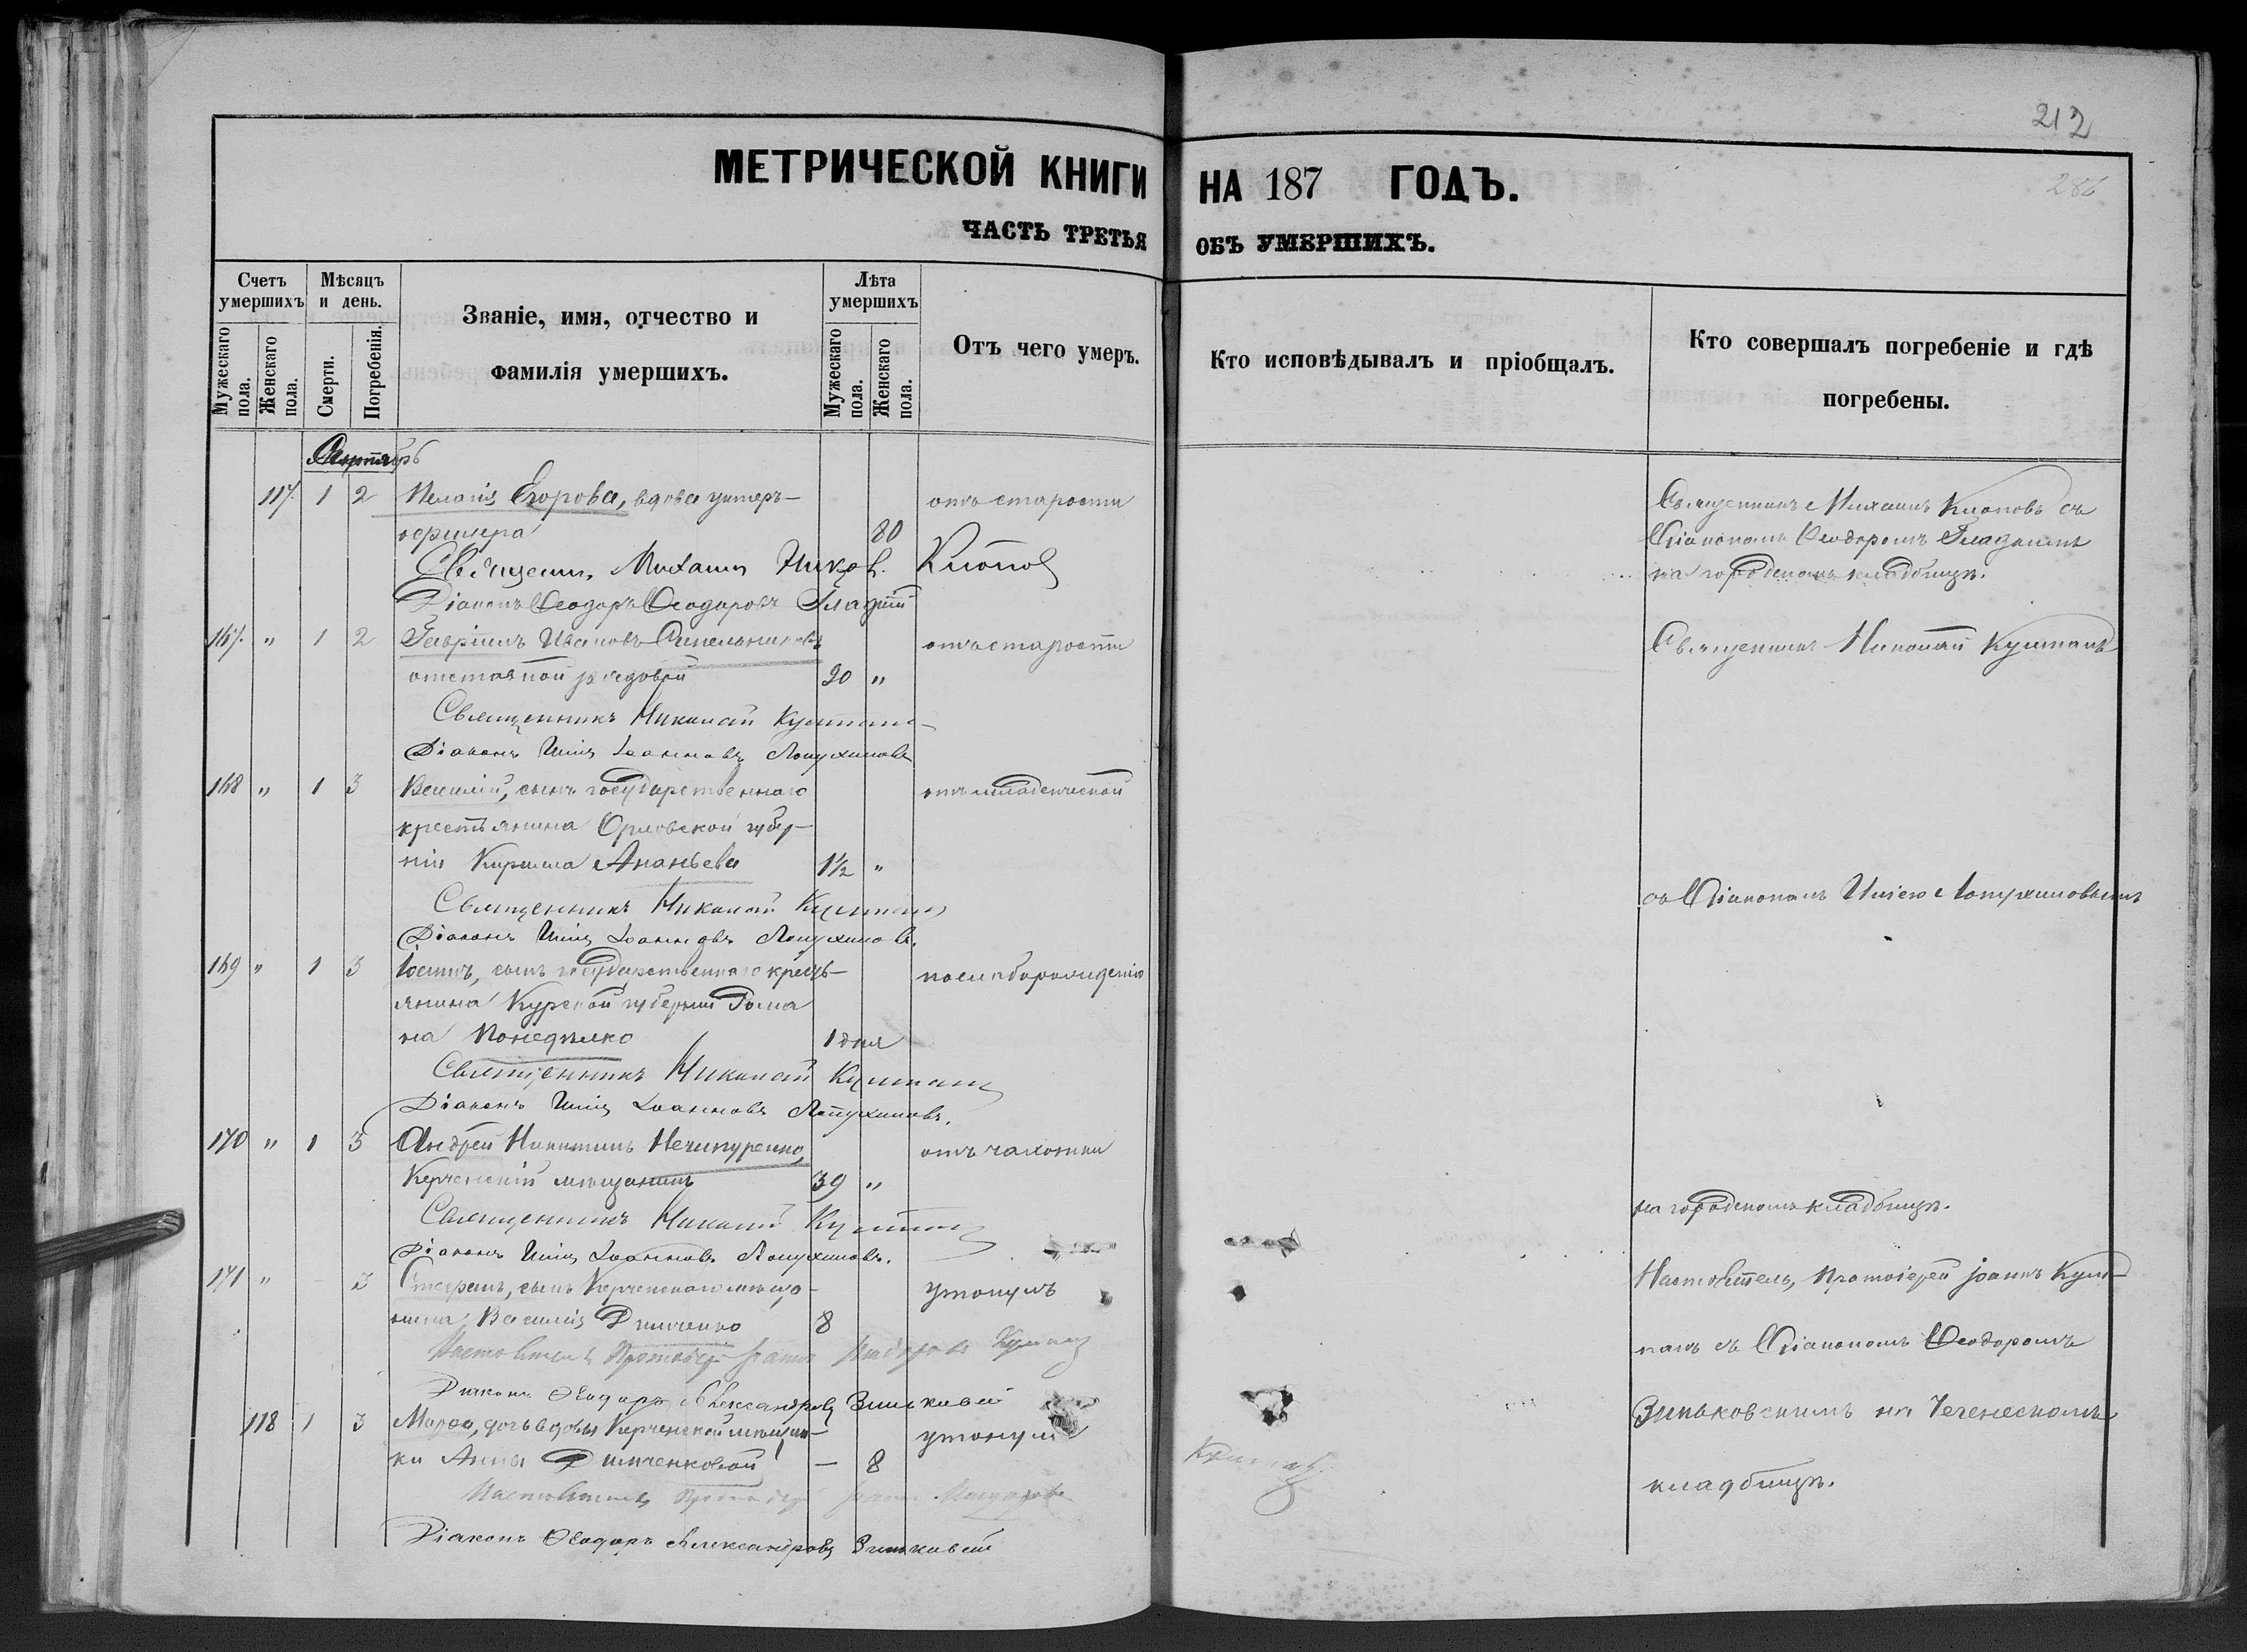 212
МЕТРИЧЕСКОЙ КНИГИ НА 187 ГОДЪ.
286
ЧАСТЬ ТРЕТЬЯ ОБЪ УМЕРШИХЪ.
Счетъ умершихъ
Мужескаго пола.
Женскаго пола.
Мѣсяцъ и день.
Смерти.
Погребенія.
Званіе, имя, отчество и
фамилія умершихъ.
Лѣта умершихъ
Мужескаго пола.
Женскаго пола.
Отъ чего умеръ.
Кто исповѣдывалъ и пріобщалъ.
Кто совершалъ погребеніе и гдѣ
погребены.
117. 1 2 Пелагія Егорова, вдова унтеръ- отъ старости Священникъ Михаилъ Клоповъ съ
офицера 80 Діакономъ Ѳеодоромъ Гладкимъ
Священ. Михаилъ Клопов на городскомъ кладбищѣ.
Діаконъ Ѳеодоръ Ѳеодоровъ Гладкій
167. " 1 2 Гавріилъ Ивановъ Синельниковъ отъ старости Священникъ Николай Кушпанъ
отставной рядовой "
Священникъ Николай
Діаконъ Илія Іоанновъ Лопухиновъ
168 " 1 3 Василій, сынъ государственнаго отъ младенческой
крестьянина Орловской губер-
ніи Кирилла Ананьева 1½ "
Священникъ Николай
Діаконъ Илія Іоанновъ Лопухиновъ. съ Діакономъ Иліею Лопухиновымъ
169 " 1 3 сынъ государственнаго кресть- по слаборожденію
янина Курской губерніи Рома
на Понедѣлко 1 дня
Священникъ Николай
Діаконъ Илія Іоанновъ Лопухиновъ.
170 " 1 3 Андрей Никитинъ Нечипуренко, отъ чахотки
Керченскій мѣщанинъ 39 "
Священникъ Николай на городскомъ кладбищѣ.
Діаконъ Илія Іоанновъ Лопухиновъ.
171 " 3 Стефанъ, сынъ Керченскаго мѣща- утонулъ Настоятель, Протоіерей Іоаннъ Куш-
нина Василія Димченко 8
Настоятель Протоіерей Іоаннъ панъ съ Діакономъ Ѳеодоромъ
Діаконъ Ѳеодоръ Александровъ Зиньковскій
118 1 3 Марѳа, дочь вдовы Керченской мѣщан- утонула Зиньковскимъ на
ки Анны Димченковой — 8
Настоятель Протоіерей Іоаннъ кладбищѣ.
Діаконъ Ѳеодоръ Александровъ Зиньковскій